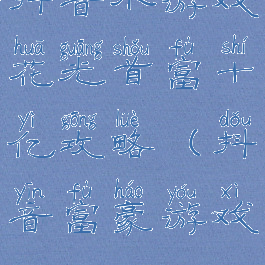 抖音来游戏
huā guāng shǒu fù shí
花光首富十
yì gōng lüè dǒu
亿攻略(抖
yīn fù háo yóu xì
音富豪游戏